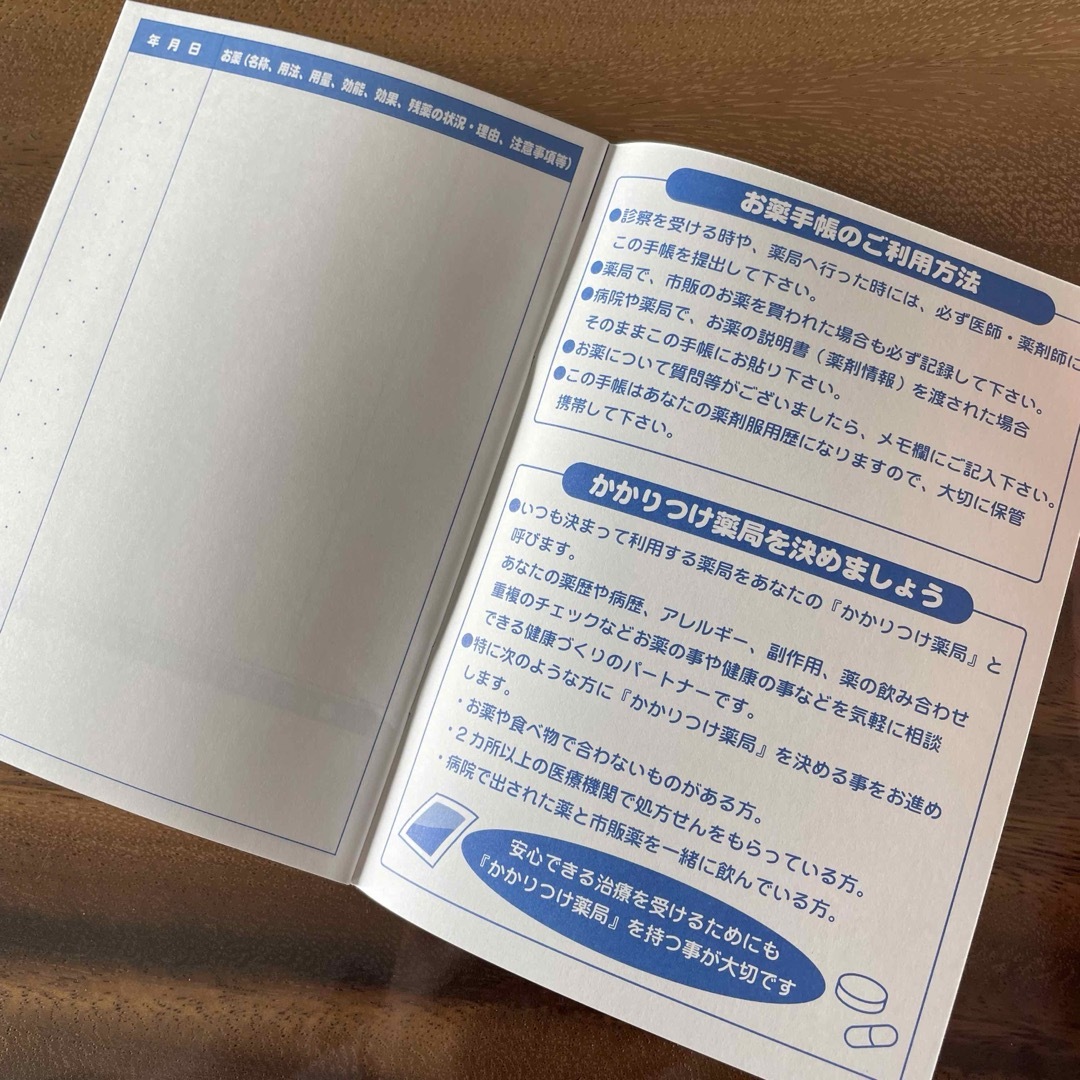 年 月 日
お薬（名称、用法、用量、効能、効果、残薬の状況・理由、注意事項等）
お薬手帳のご利用方法
●診察を受ける時や、薬局へ行った時には、必ず医師・薬剤師に
この手帳を提出して下さい。
●薬局で、市販のお薬を買われた場合も必ず記録して下さい。
●病院や薬局で、お薬の説明書（薬剤情報）を渡された場合
そのままこの手帳にお貼り下さい。
●お薬について質問等がございましたら、メモ欄にご記入下さい。
●この手帳はあなたの薬剤服用歴になりますので、大切に保管
携帯して下さい。
かかりつけ薬局を決めましょう
●いつも決まって利用する薬局をあなたの『かかりつけ薬局』と
呼びます。
あなたの薬歴や病歴、アレルギー、副作用、薬の飲み合わせ
重複のチェックなどお薬の事や健康の事などを気軽に相談
できる健康づくりのパートナーです。
●特に次のような方に『かかりつけ薬局』を決める事をお進め
します。
・お薬や食べ物で合わないものがある方。
・2カ所以上の医療機関で処方せんをもらっている方。
・病院で出された薬と市販薬を一緒に飲んでいる方。
安心できる治療を受けるためにも
『かかりつけ薬局』を持つ事が大切です